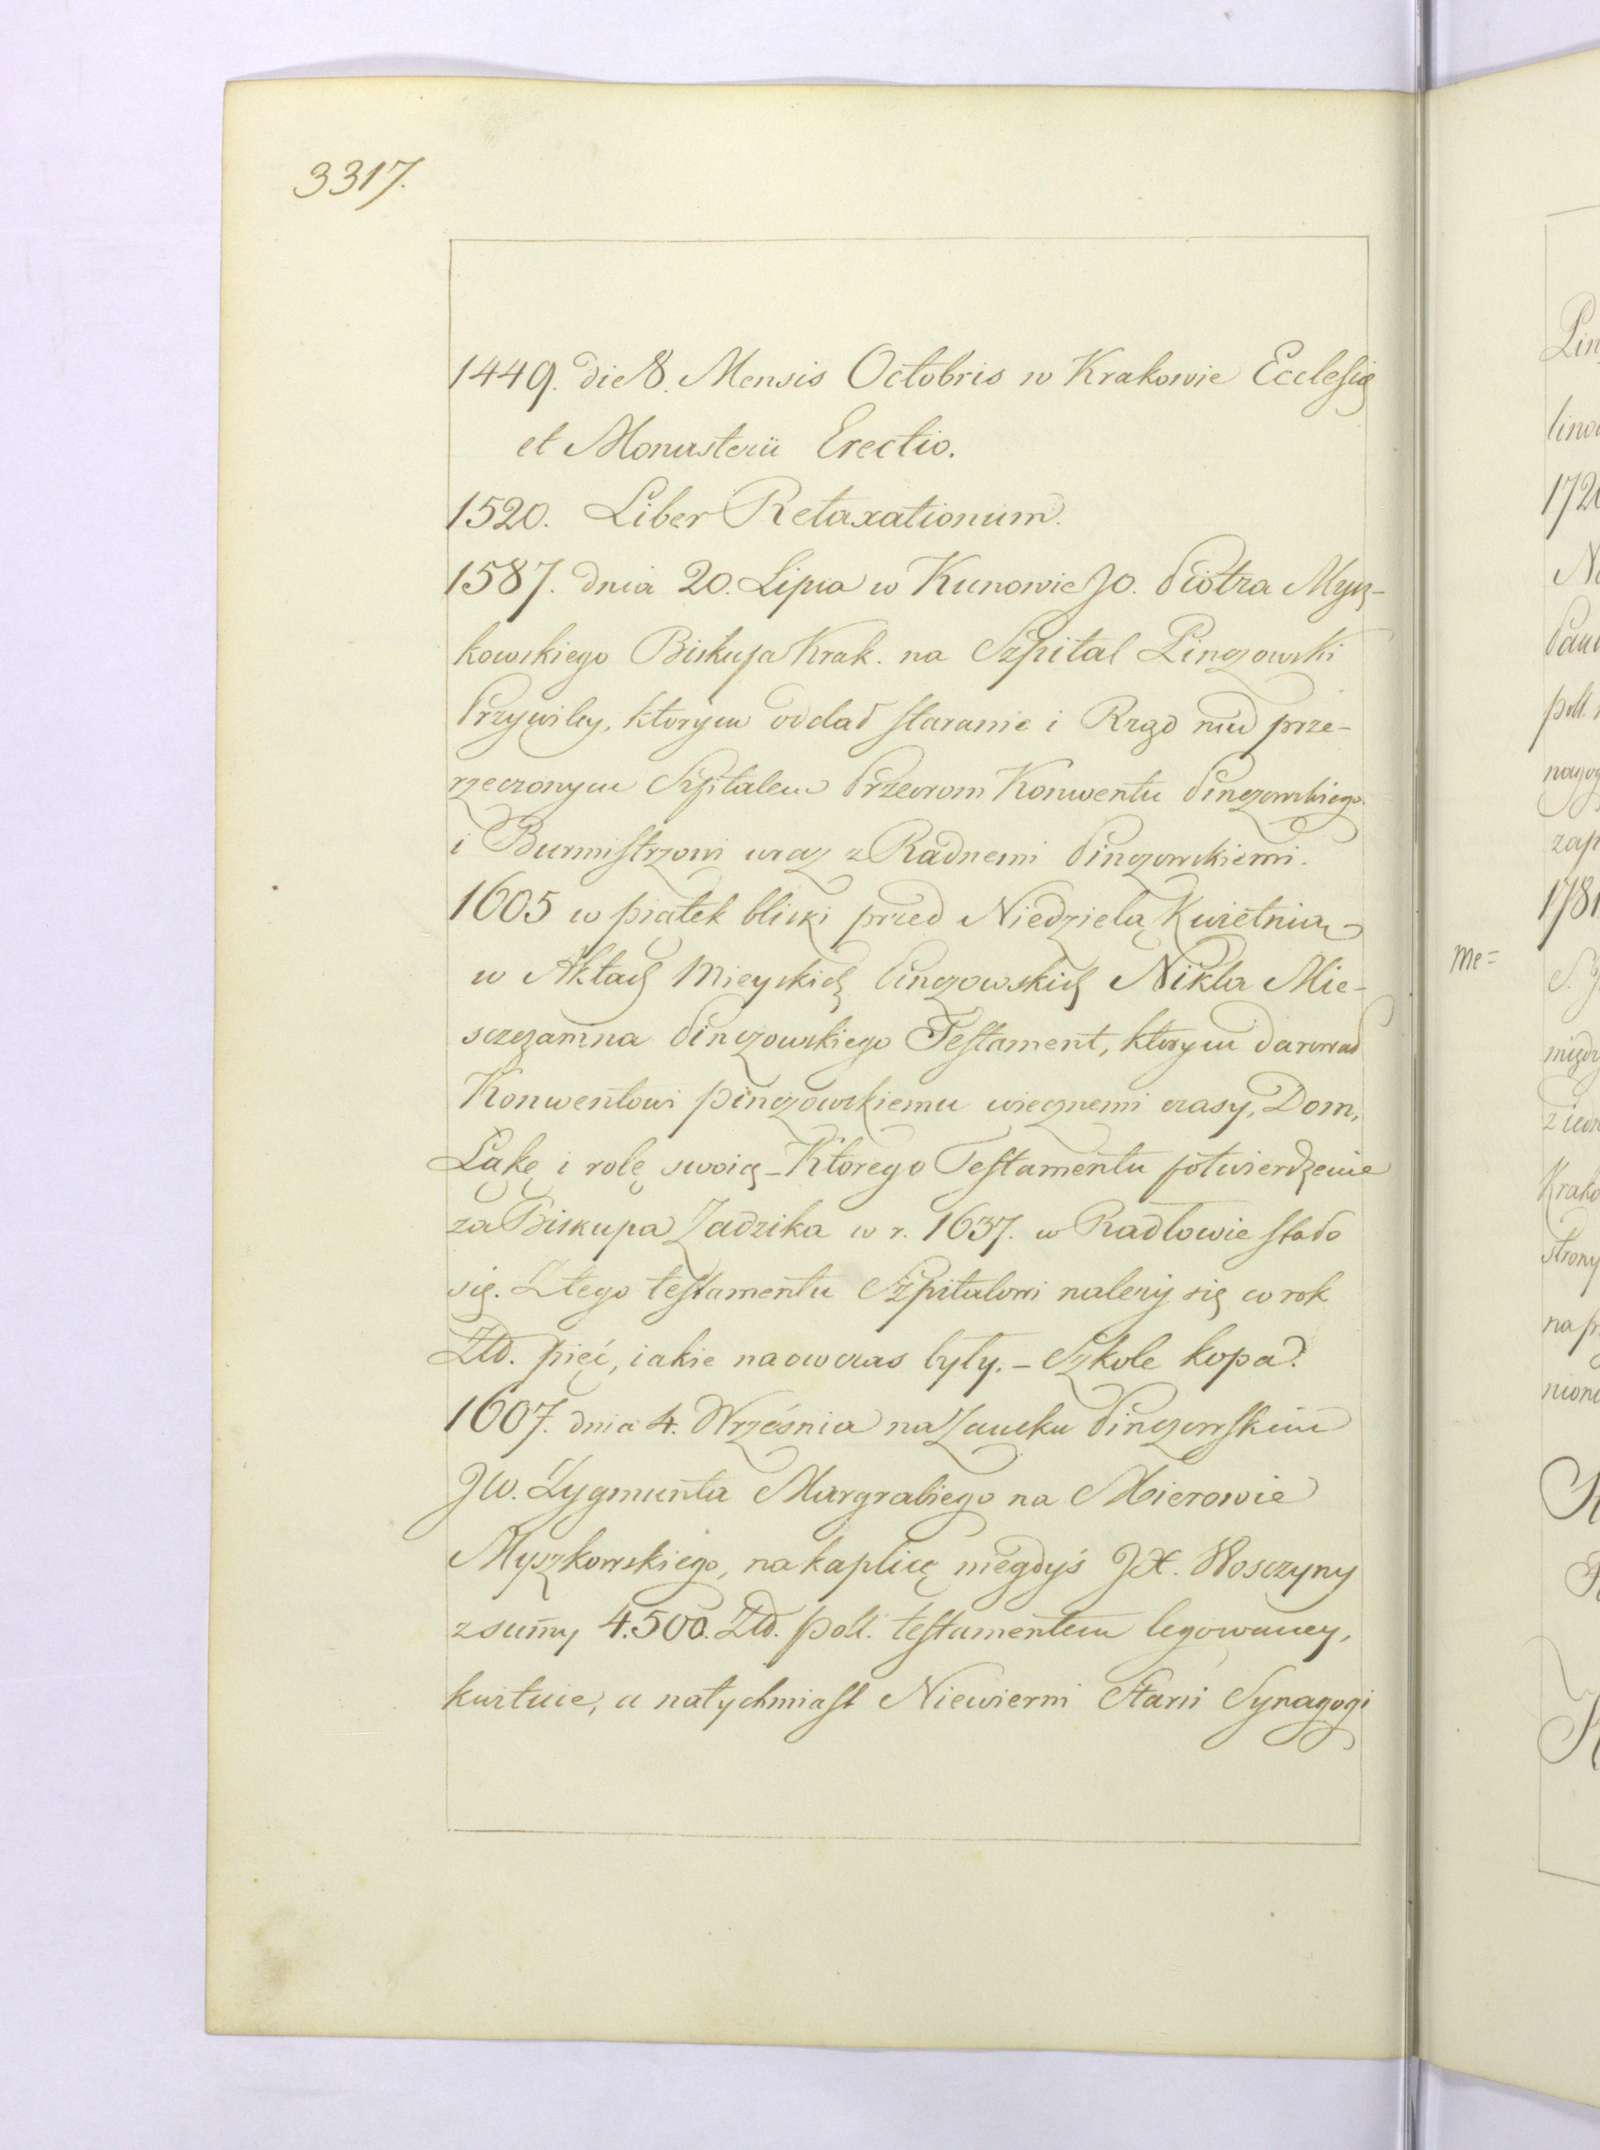 3317.
1449. die 8. Mensis Octobris w Krakowie Ecclesię
et Monasterii Erectio.
1520. Liber Retaxationum.
1587. dnia 20. Lipca w Kunowie JO. Piotra Mysz-
kowskiego Biskupa Krak. na Szpital Pinczowski
Przywiley, którym oddał staranie i Rząd nad prze-
rzeczonym Szpitalem Przeorom Konwentu Pinczowskiego
i Burmistrzowi wraz z Radnemi Pinczowskiemi.
1605 w piątek bliski przed Niedzielą Kwietnią
w Aktach Mieyskich Pinczowskich Nikla Mie-
szczanina Pinczowskiego Testament, którym darował
Konwentowi pinczowskiemu wiecznemi czasy, Dom,
Łąkę i rolę swoię – Którego Testamentu potwierdzenie
za Biskupa Zadzika w r. 1637. w Radłowie stało
się. Z tego testamentu Szpitalowi należy się co rok
Złł. pięć, iakie naowczas były. – Szkole kopa.
1607. dnia 4. Września na Zamku Pinczowskim
JW. Zygmunta Margrabiego na Mirowie
Myszkowskiego, na kaplicę niegdyś JX. Wosczyny
z summy 4.500. Złł. poll. testamentem legowaney,
kwituie, a natychmiast Niewierni Starsi Synagogi
Pin
linow
1720
poll.
zap
1781
me=
S. J
między
z iedn
Krako
strony
na p
niono